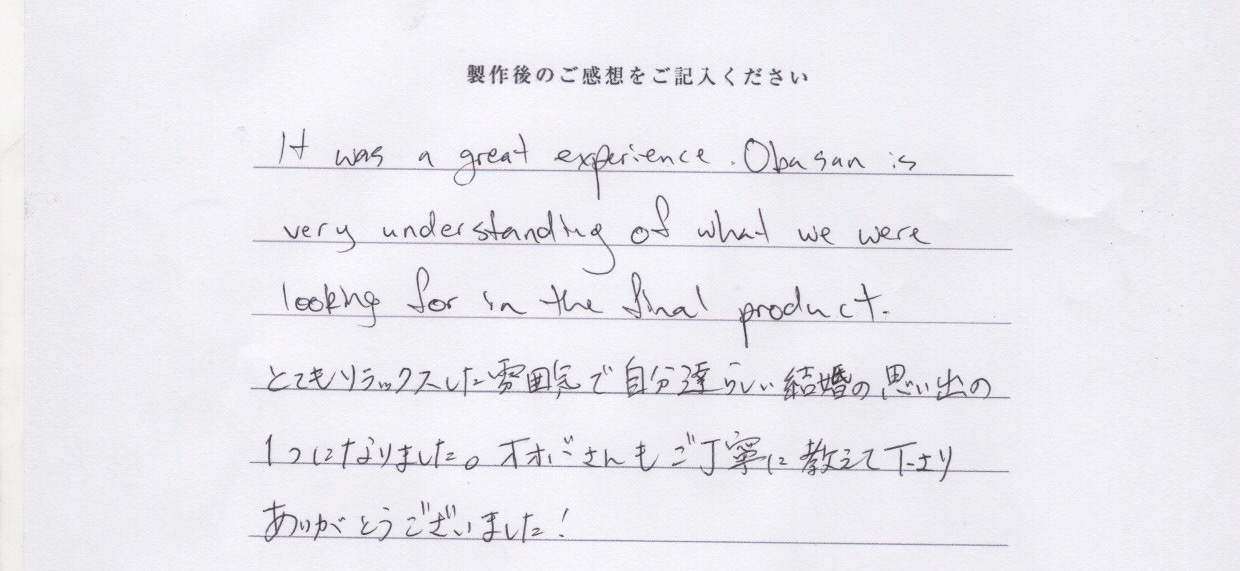 製作後のご感想をご記入ください
It was a great experience. Obasan is
very understanding of what we were
looking for in the final product.
とてもリラックスした雰囲気で自分達らしい結婚の思い出の
1つになりました。オオバさんもご丁寧に教えて下さり
ありがとうございました!